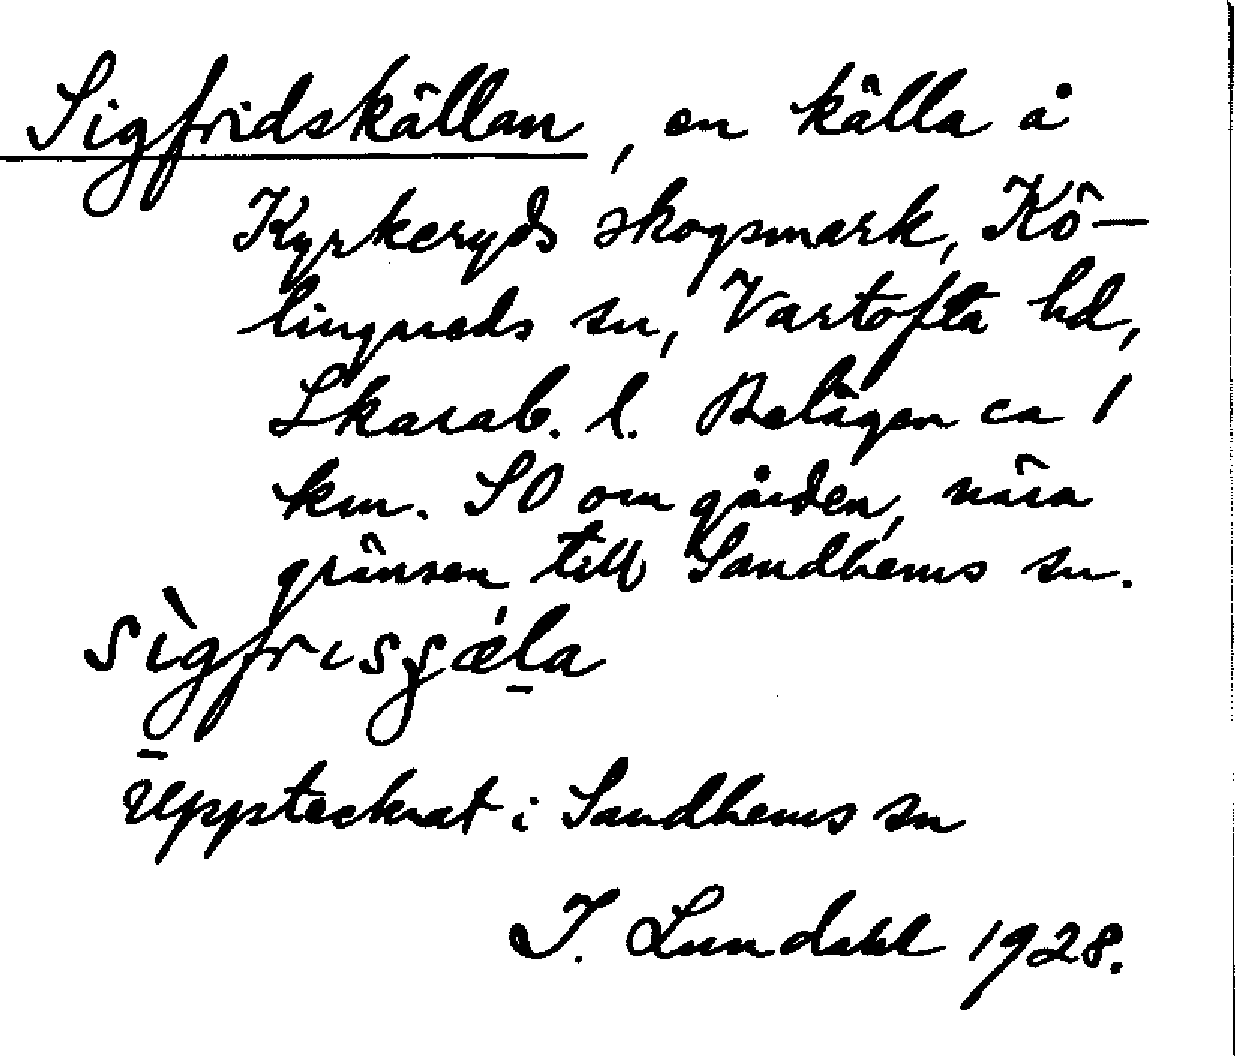 Sigfridskällan, en källa å
Kyrkeryds skogsmark, Kö-
lingareds sn, Vartofta hd,
Skarab. l. Belägen ca 1
km. SO om gården, nära
gränsen till Sandhems sn.
sìgfrɩsʂæ̍la
Uppteckнat i Sandhems sn
I. Lundahl 1928.